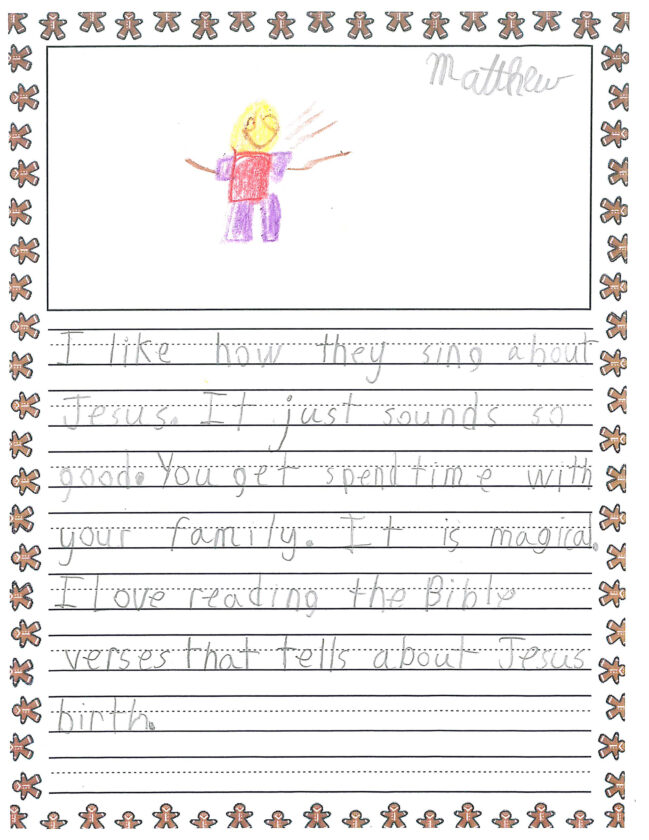 Matthew
I like how they sing about
Jesus. It just sounds so
good. You get spend time with
your family. It is magical.
I love reading the Bible
verses that tells about Jesus
birth.